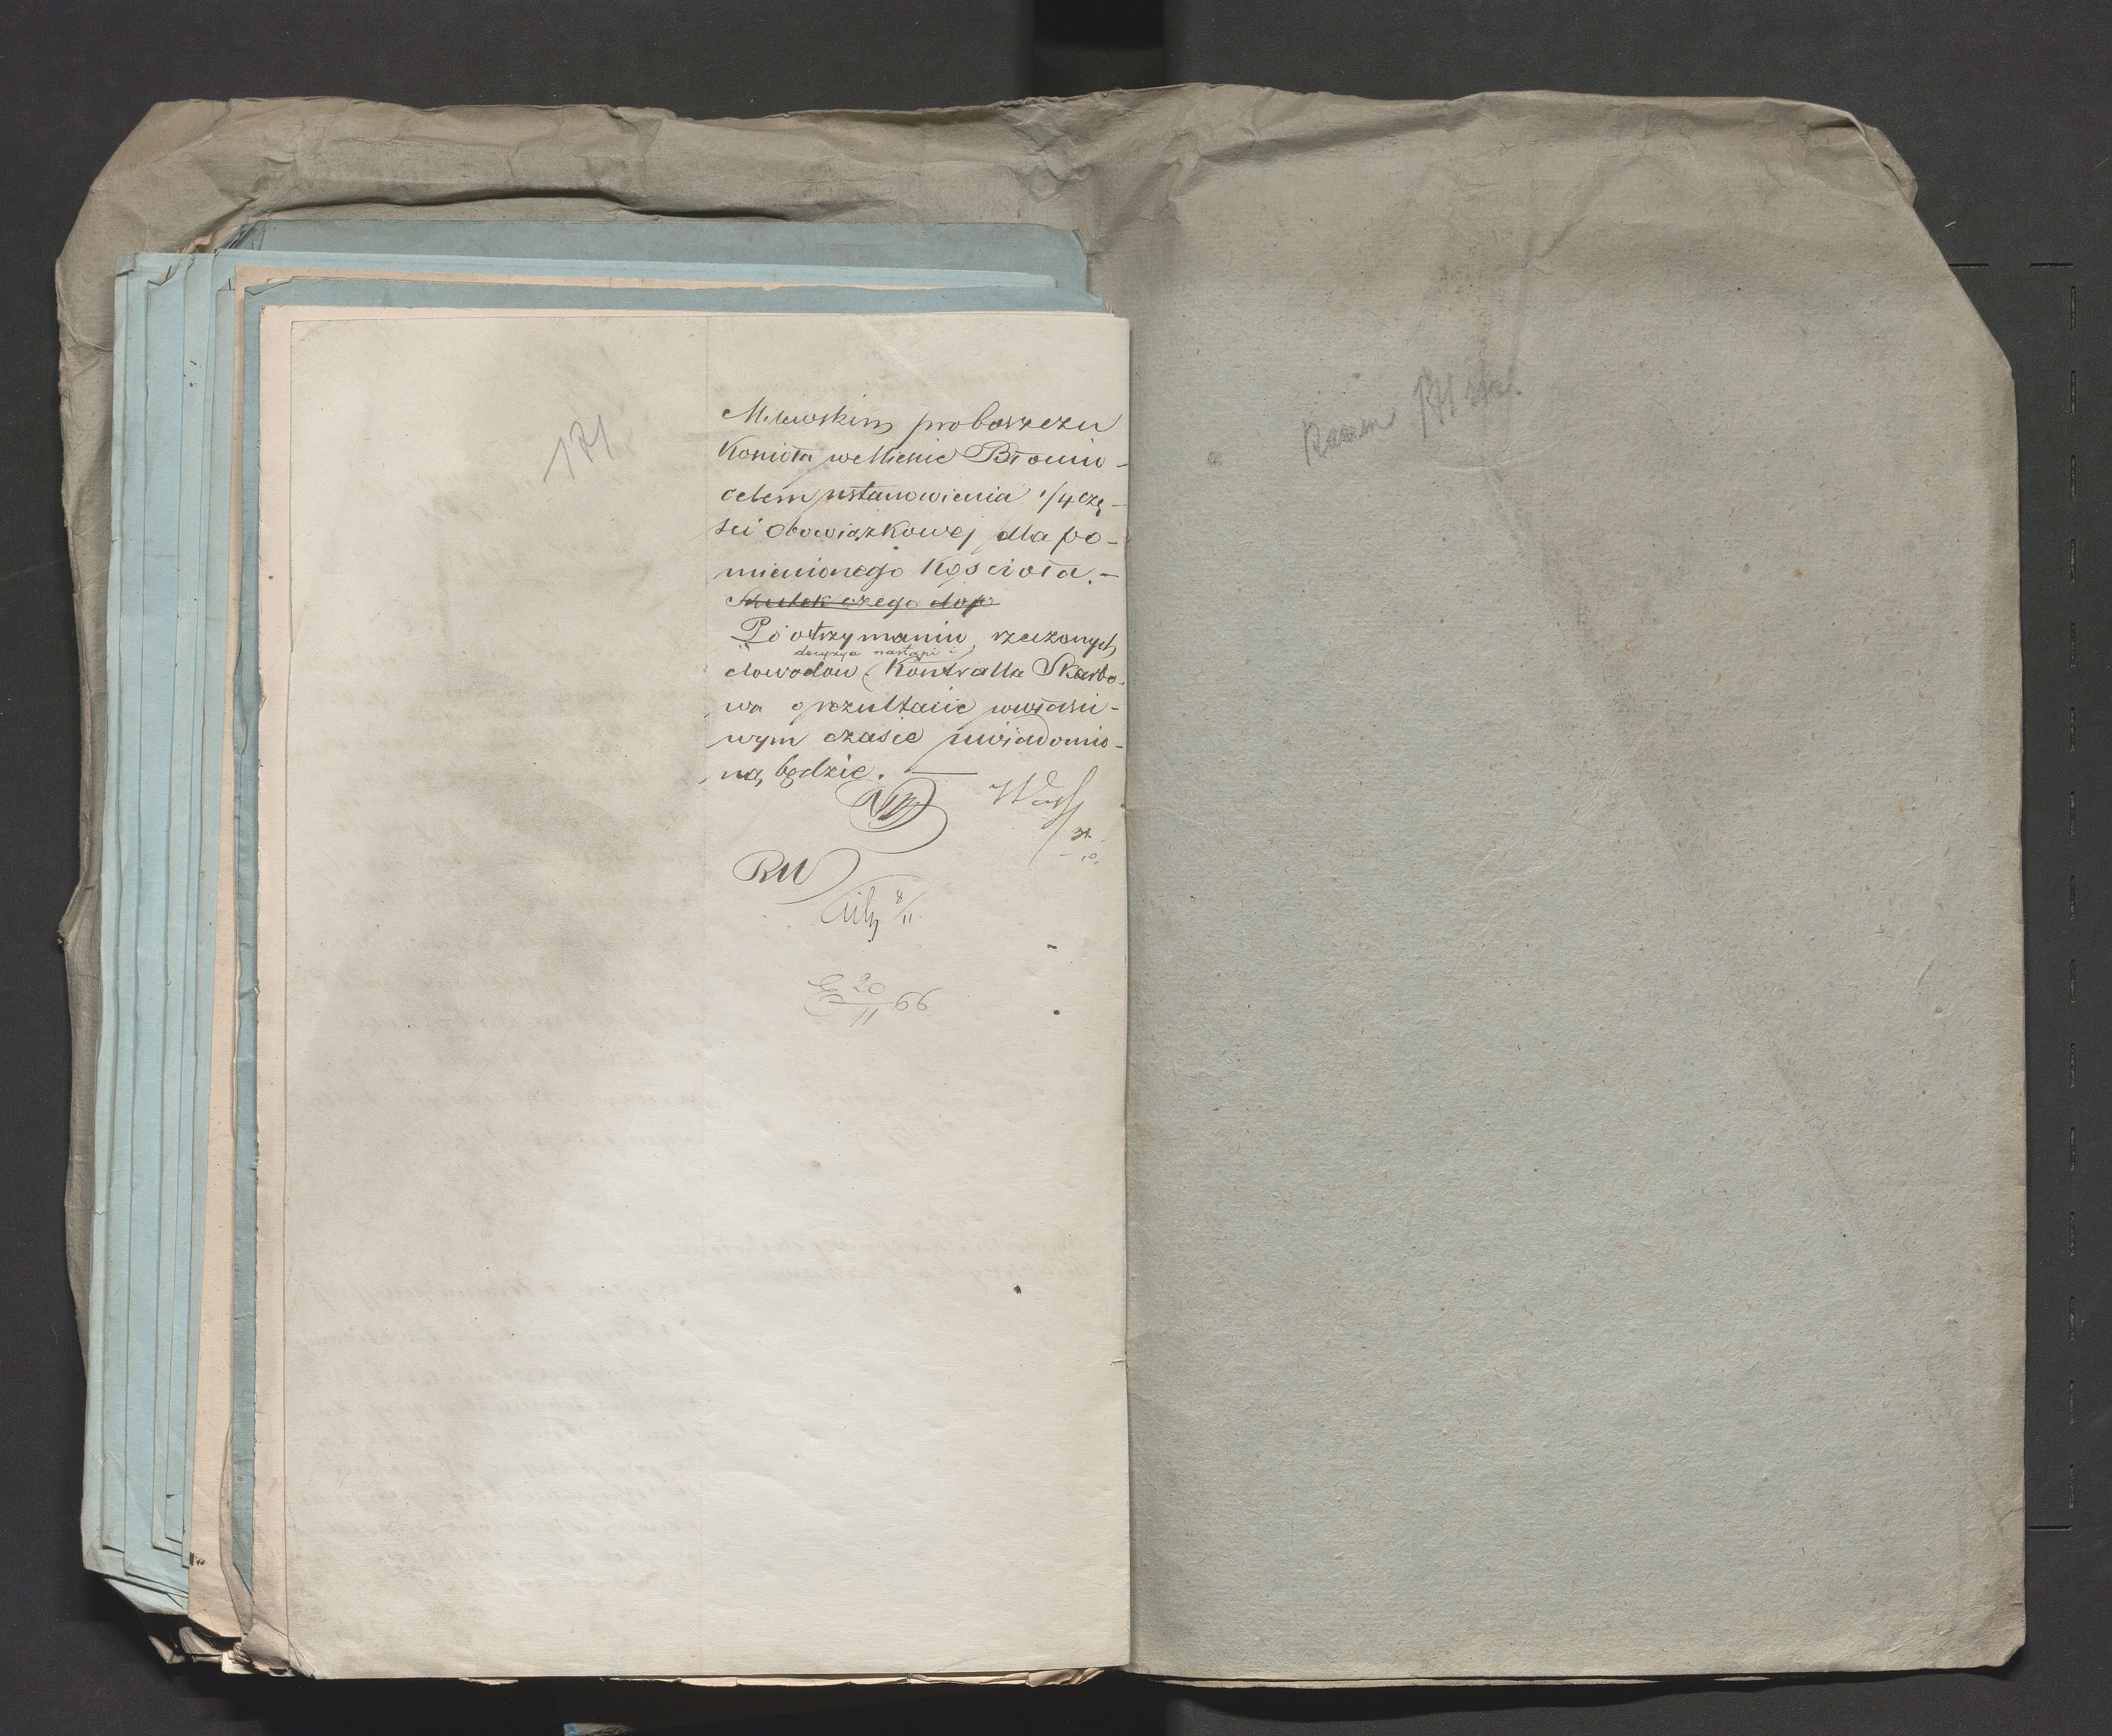 171
Milewskim proboszczu
Kościoła we Mieście Błoniu -
celem ustanowienia 1/4 czę-
ści obowiązkowej dla po-
mienionego Kościoła. -
Skutek czego do
Po otrzymaniu rzeczonych
decyzya nastąpi i
dowodów Kontrolla Skarbo-
wa o rezultacie wwłaści-
wym czasie uwiadomio-
ną będzie. -
31
10
RM
8/11
20
11 66
Razem 171